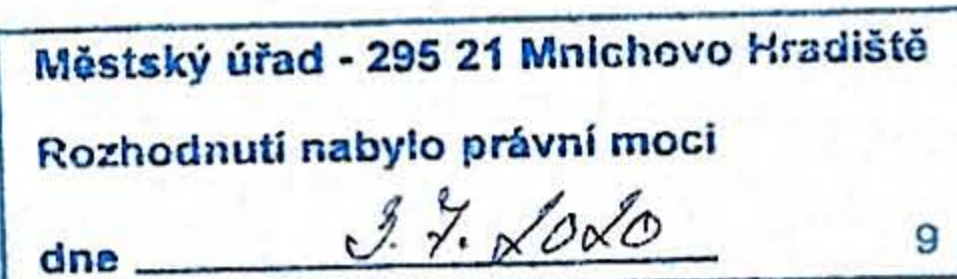 Městský úřad - 295 21 Mnichovo Hradiště
Rozhodnutí nabylo právní moci
dne 3. 7. 2020 9